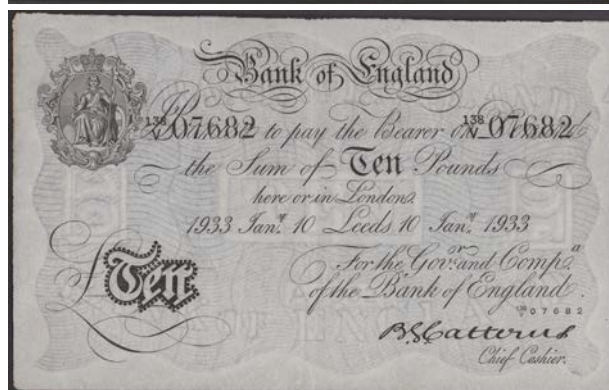 Bank of England
138/V 07682 to pay the Bearer on Demand 138/V 07682
the Sum of Ten Pounds
here or in London.
1933 Jany. 10 Leeds 10 Jany. 1933
For the Govr. and Compa.
of the Bank of England.
£Ten
138/V 07682
B.G. Catterns
Chief Cashier.